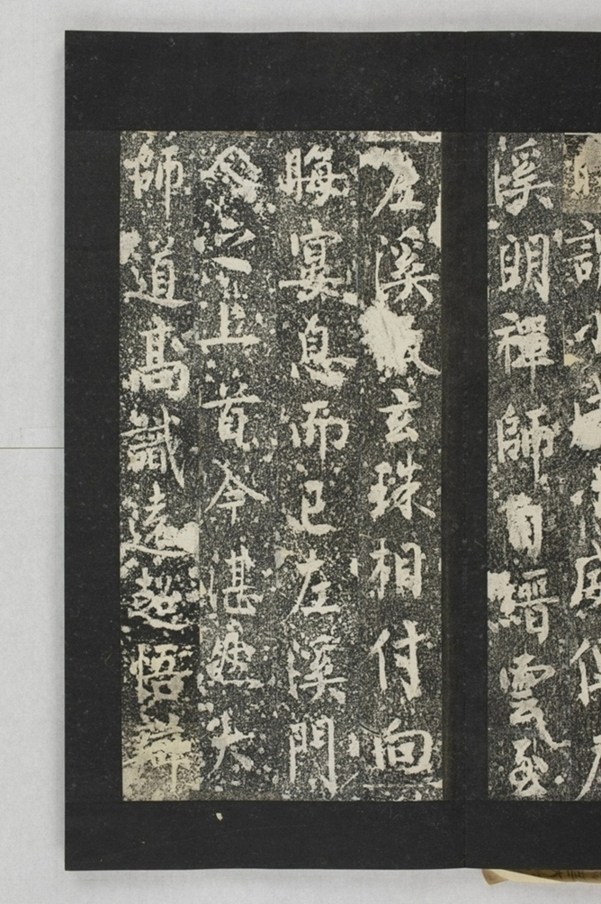 溪明禪師自縉雲至
左溪玄珠相付向
晦宴息而已左溪門
人之上首今湛然大
師道高識遠超悟辯